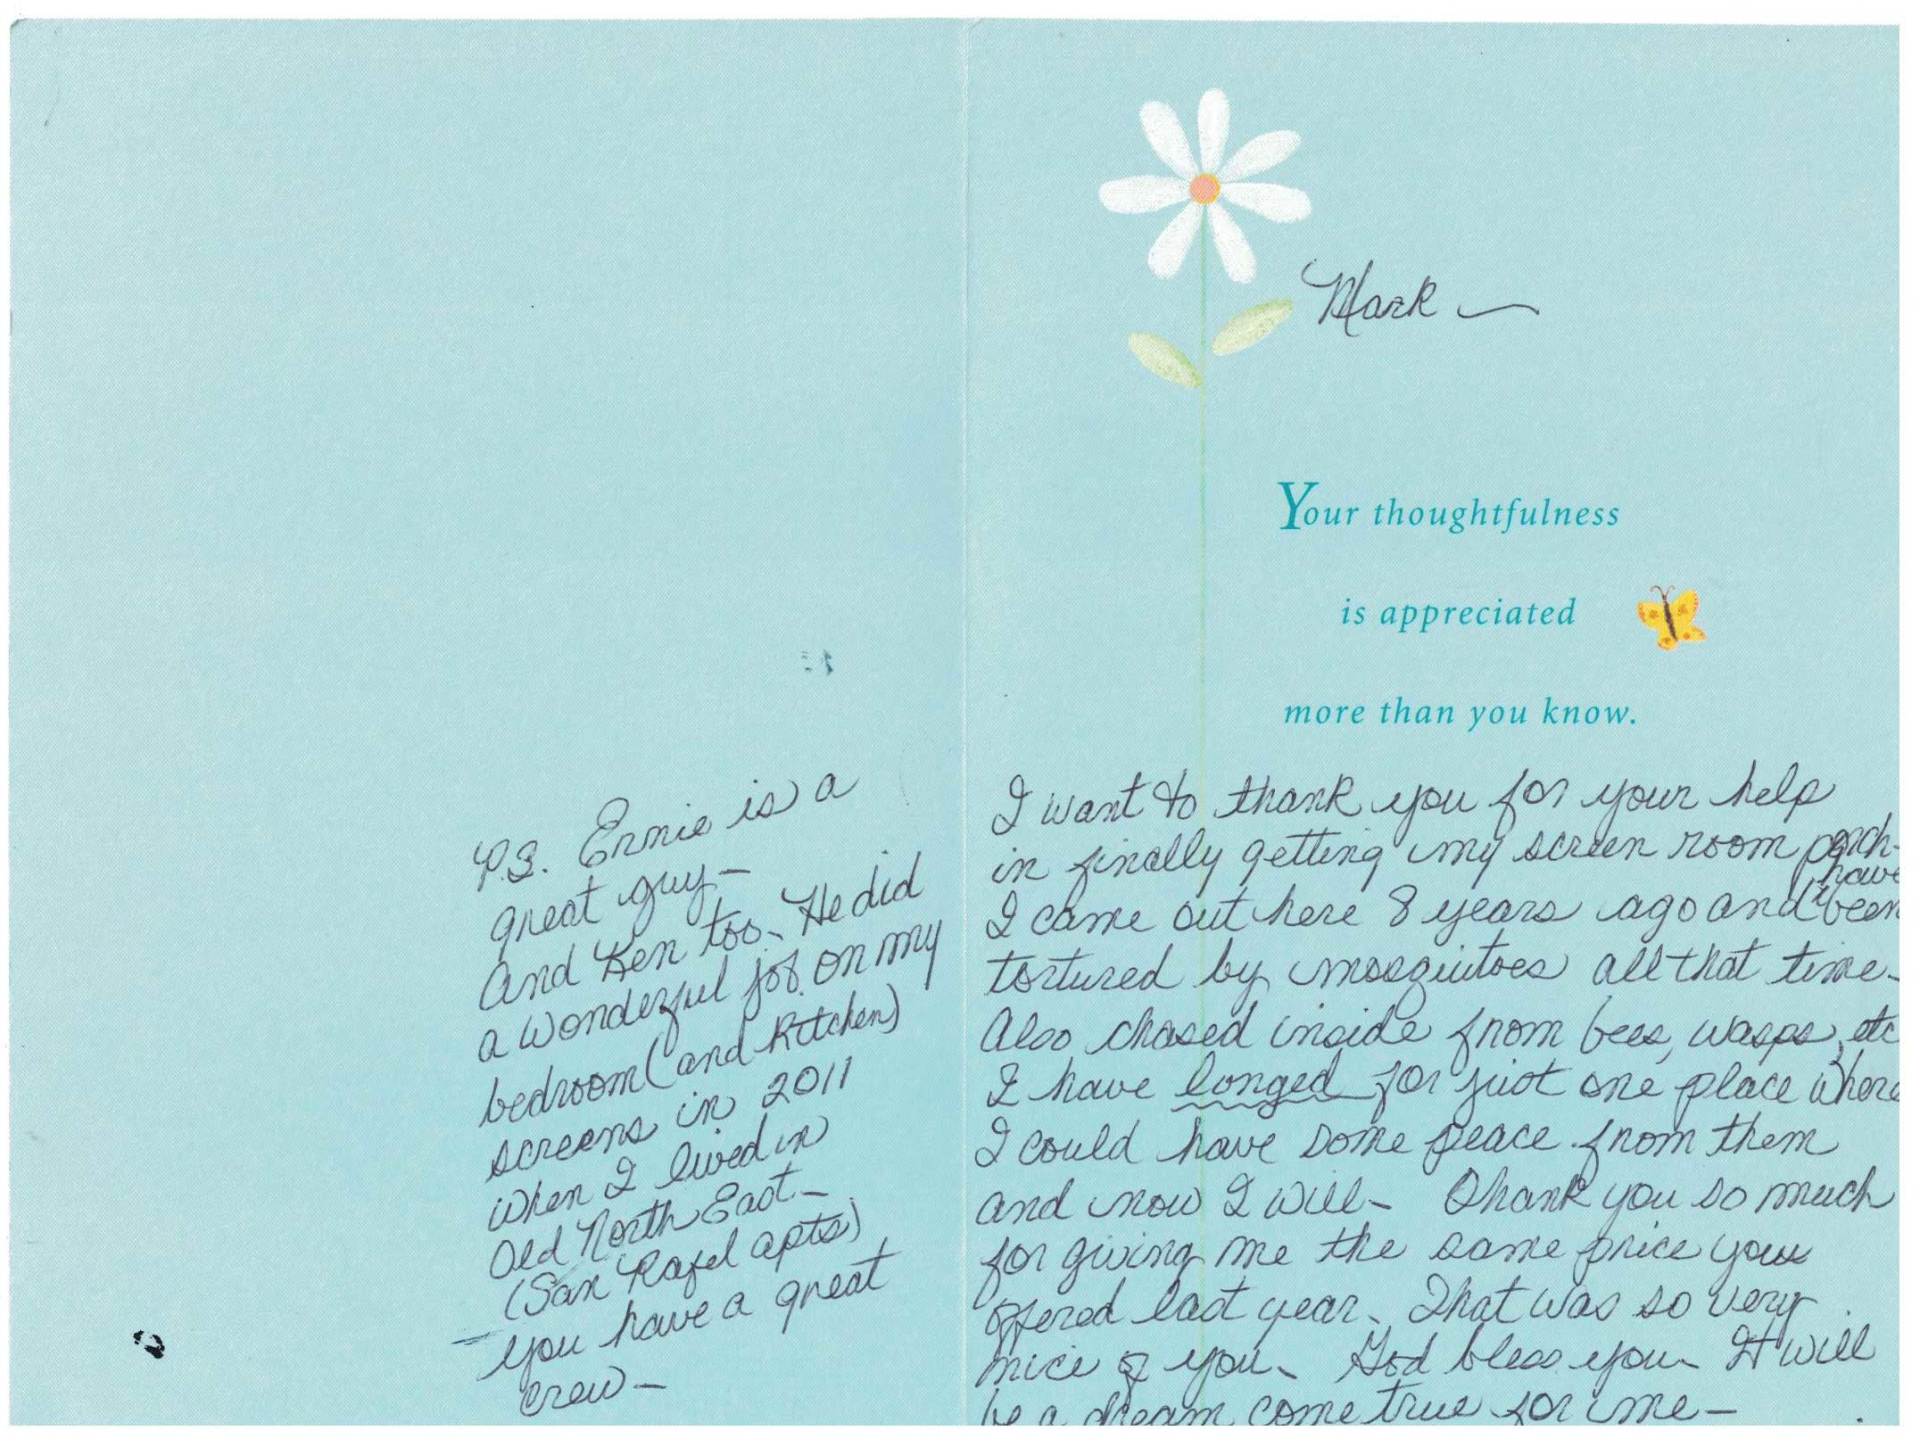 Mark —
Your thoughtfulness
is appreciated
more than you know.
I want to thank you for your help
in finally getting my screen room porch-
I came out here 8 years ago and have been
tortured by mosquitoes all that time-
Also chased inside from bees, wasps, etc
I have longed for just one place where
I could have some peace from them
and now I will- Thank you so much
for giving me the same price you
offered last year. That was so very
nice of you. God bless you. It will
be a dream come true for me-
P.S. Ernie is a
great guy-
And Ken too. He did
a wonderful job on my
bedroom (and kitchen)
screens in 2011
when I lived in
Old North East-
(San Rafel apts)
you have a great
crew-